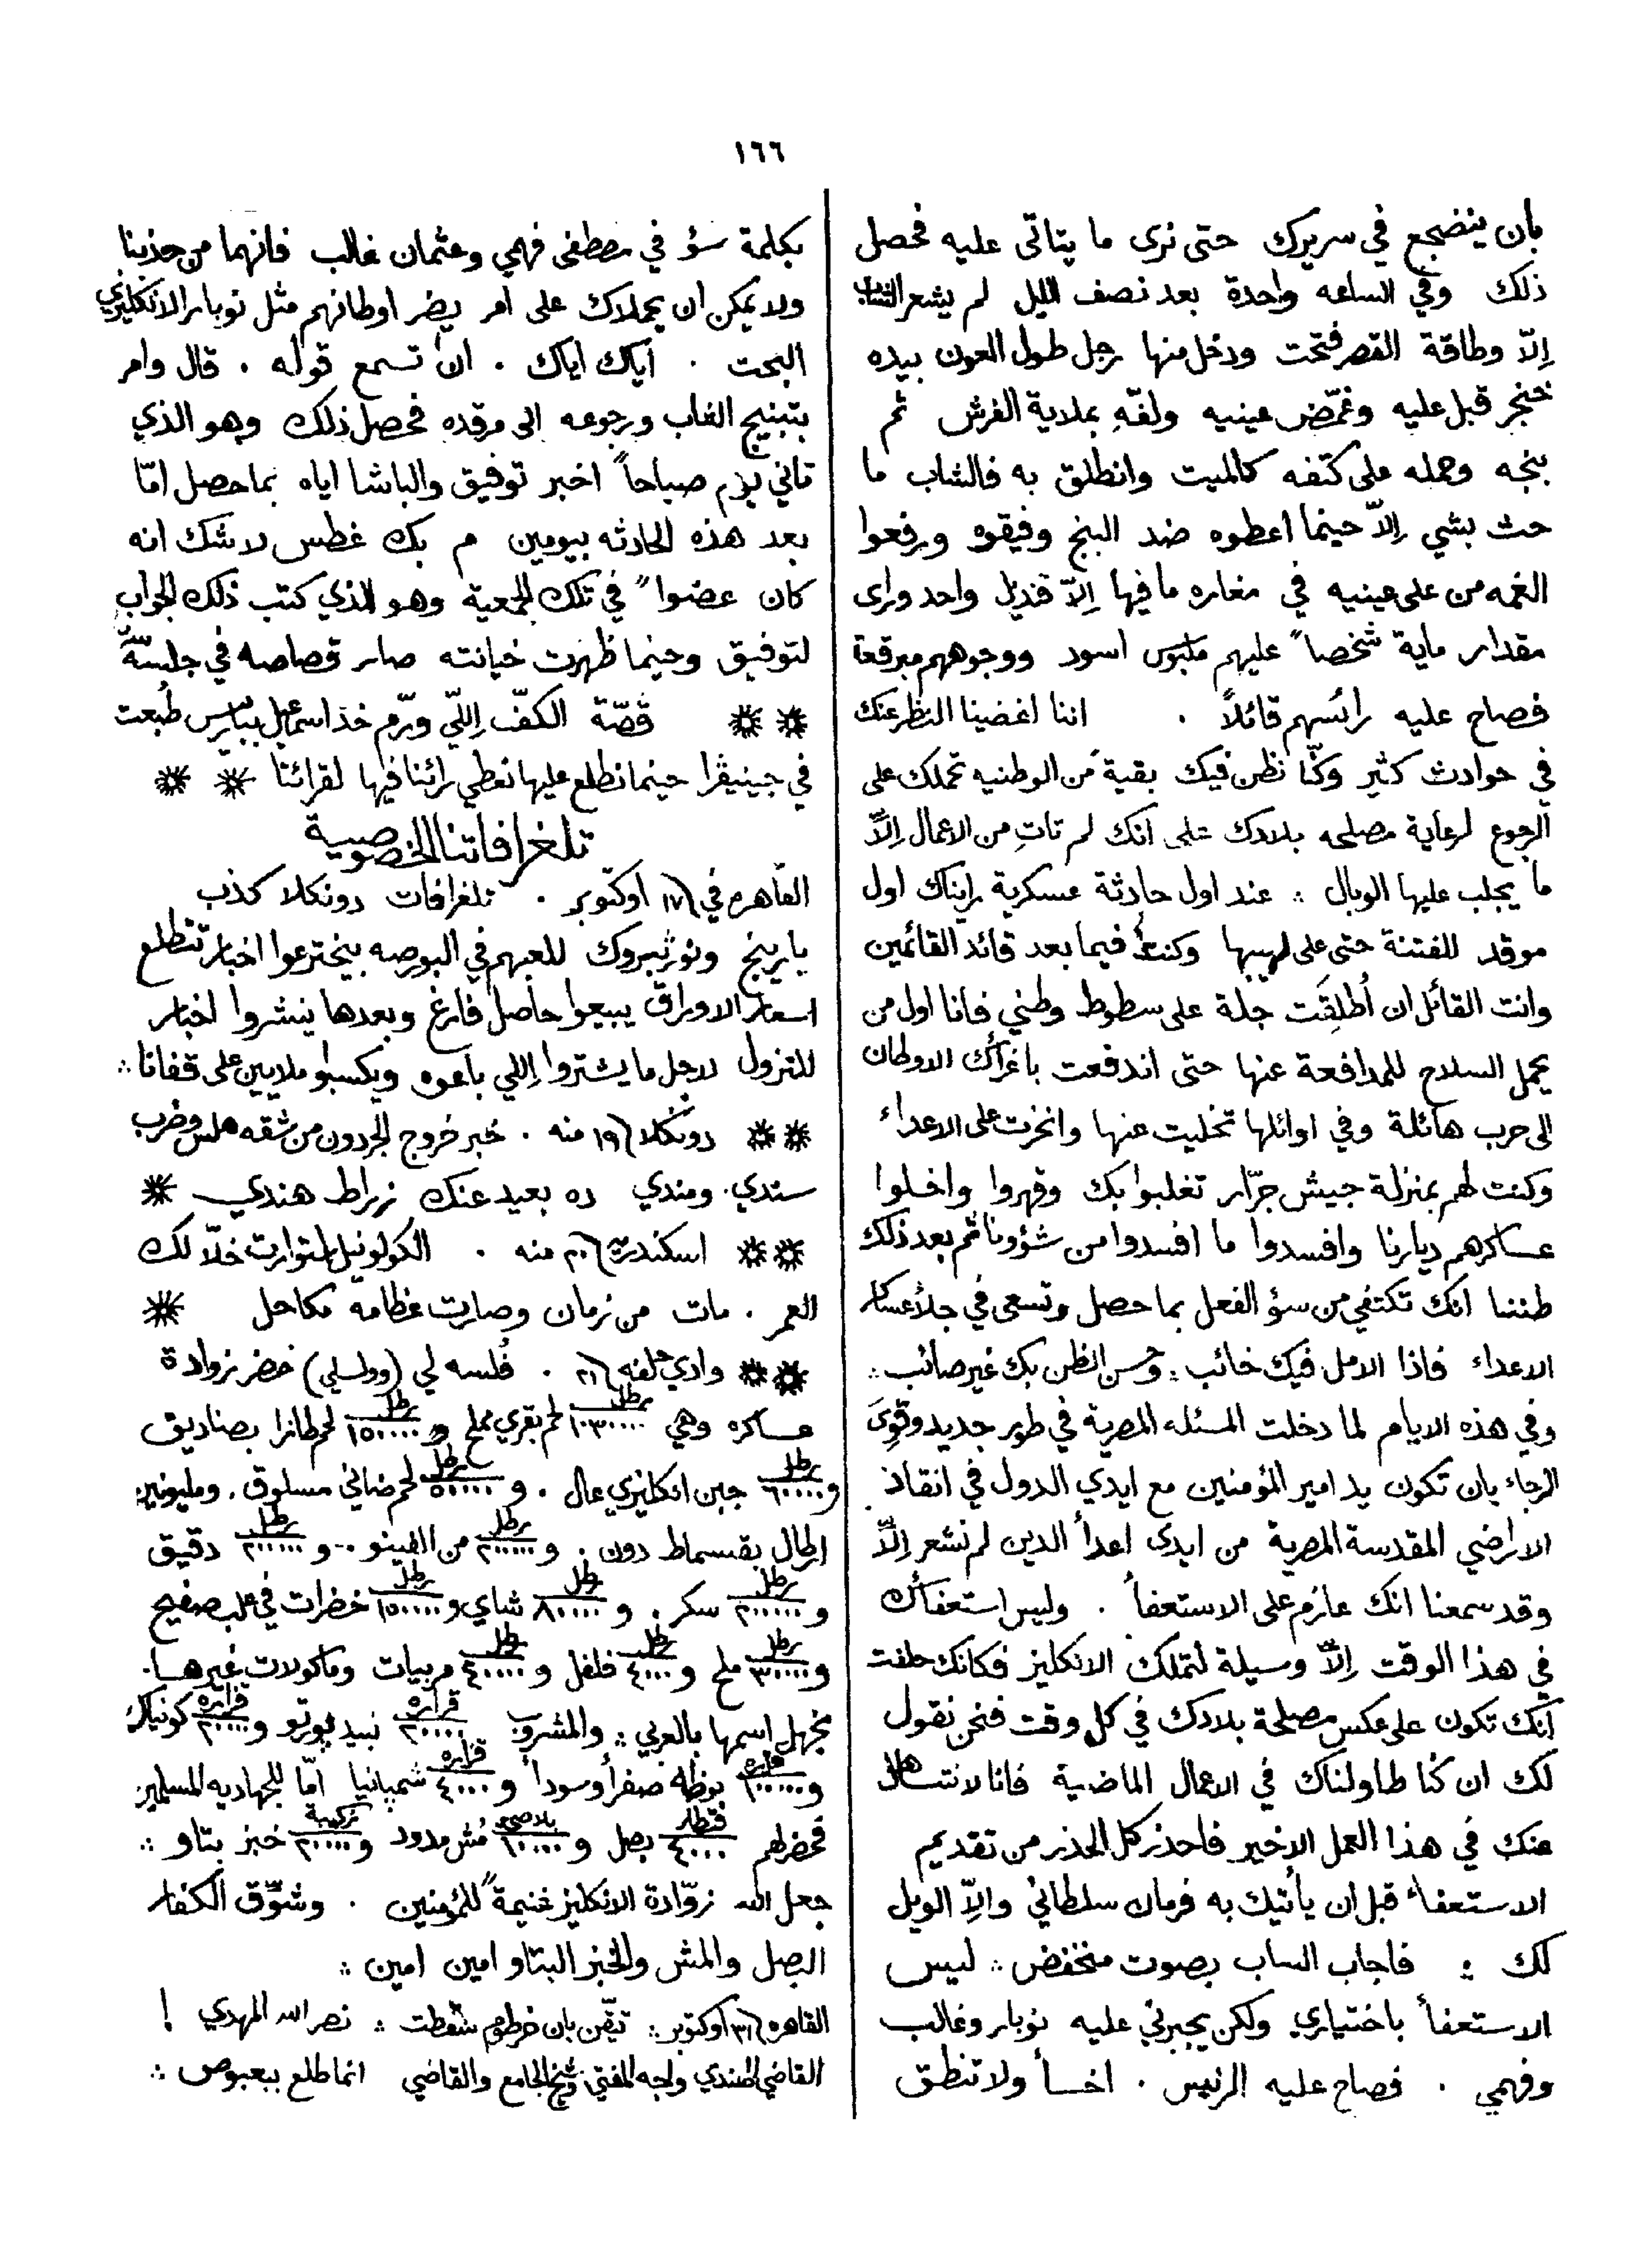 ١٦٦
بأن ينضجع في سريرك حتى نرى ما يتاتى عليه فحصل
ذلك وفي الساعه واحدة بعد نصف الليل لم يشعر الشاب
اِلاّ وطاقة القصر فتحت ودخل منها رجل طول العون بيده
خنجر قبل عليه وغمّض عينيه ولفّهِ بملاية الفرش ثم
بنجه وحمله على كتفه كالميت وانطلق به فالشاب ما
حث بشي اِلاّ حينما اعطوه ضد البنج وفيقوه ورفعوا
الغمه من على عينيه في مغاره ما فيها اِلاّ قنديل واحد وراى
مقدار ماية شخصاً عليهم ملبوس اسود ووجوههم مبرقعة
فصاح عليه رائسهم قائلاً . اننا اغضينا النظر عنك
في حوادث كثير وكنّا نظن فيك بقية من الوطنيه تحملك على
الرجوع لرعاية مصلحه بلادك على انك لم تاتِ من الاعمال اِلاّ
ما يجلب عليها الوبال ؞ عند اول حادثة عسكرية رايناك اول
موقد للفتنة حتى على لهيبها وكنت فيما بعد قائد القائمين
وانت القائل ان أُطلِقَت جلة على سطوط وطني فانا اول من
يحمل السلاح للمدافعة عنها حتى اندفعت باغرائك الاوطان
الى حرب هائلة وفي اوائلها تخليت عنها وانخزت على الاعداء
وكنت لهم بمنزلة جيش جرّار تغلبوا بك وقهروا واخلوا
عساكرهم ديارنا وافسدوا ما افسدوا من شؤوننا ثم بعد ذلك
ظننا انك تكتفي من سؤ الفعل بما حصل وتسعى في جلأ عساكر
الاعداء فاذا الامل فيك خائب ؞ وحسن الظن بك غير صائب ؞
وفي هذه الايام لما دخلت المسئله المصرية في طور جديد وقوِىَ
الرجاء بان تكون يد امير المؤمنين مع ايدي الدول في انقاذ
الاراضي المقدسة المصرية من ايدى اعدأ الدين لم نشعر اِلاّ
وقد سمعنا انك عازم على الاستعفأ . وليس استعفأك
في هذا الوقت اِلاّ وسيلة لتملك الانكليز فكانك حلفت
انك تكون على عكس مصلحة بلادك في كل وقت فنحن نقول
لك ان كنا طاولناك في الاعمال الماضية فانا لا نتساهل
عنك في هذا العمل الاخير فاحذر كل الحذر من تقديم
الاستعفاء قبل ان يأتيك به فرمان سلطاني واِلاّ الويل
لك ؞ فاجاب الساب بصوت منخفض ؞ ليس
الاستعفأ باختياري ولكن يجبرني عليه نوبار وغالب
وفهمي . فصاح عليه الرئيس . اخسأ ولا تنطق
بكلمة سؤ في مصطفى فهمي وعثمان غالب فانهما من حزبنا
ولا يمكن ان يحملاك على امر يضر اوطانهم مثل نوبار الانكليزي
البحت . اياك اياك . ان تسمع قوله . قال وامر
بتبنيج الشاب ورجوعه الى مرقده فحصل ذلك وهو الذي
تاني يوم صباحاً اخبر توفيق والباشا اياه بما حصل امّا
بعد هذه الحادثه بيومين م بك غطس لا شك انه
كان عضواً في تلك الجمعية وهو الذي كتب ذلك الجواب
لتوفيق وحينما ظهرت خيانته صار قصاصه في جلسة سريّة
⁕ ⁕ قصّة الكفّ اِللّي ورّم خد اسماعيل بباريس طُبعت
في جينيڤرا حينما نطلع عليها نعطي رائنا فيها لقرائنا ⁕ ⁕
تلغرافاتنا الخصوصية
القاهره في ١٧ اوكتوبر . تلغرافات دونكلا كذب
بارينج ونورثبروك للعبهم في البورصه بيخترعوا اخبار تتطلع
اسعار الاوراق يبيعوا حاصل فارغ وبعدها ينشروا اخبار
للتزول لاجل ما يشتروا اِللي باعوه ويكسبو ملايين على قفانا ؞
⁕ ⁕ دونكلا ١٩ منه . خبر خروج الجردون من شقه هلس وضرب
سندي ومندي ده بعيد عنك زراط هندي ⁕
⁕ ⁕ اسكندريه ٢٠ منه . الكولونيل استوارت خلّا لك
العمر . مات من زمان وصارت عظامه مكاحل ⁕
⁕ ⁕ وادي حلفه ٢١ . فُلسه لي (وولسلي) حضر زوادة
عساكره وهي رطل ١٠٣٠٠٠٠ لحم بقري مملح و رطل ١٥٠٠٠٠٠ لحم طازا بصناديق
و رطل ٦٠٠٠٠ جبن انكليزي عال . و رطل ٥٠٠٠٠٠ لحم ضاني مسلوق . ومليونين
ارطال بقسماط دون . و رطل ٢٠٠٠٠٠ من الفينو -- و رطل ٢٠٠٠٠٠٠ دقيق
و رطل ٢٠٠٠٠٠٠ سكر . و رطل ٨٠٠٠٠ شاي و رطل ١٥٠٠٠٠٠ خضرات في علب صفيح
و رطل ٣٠٠٠٠٠ ملح و رطل ٤٠٠٠ فلفل و رطل ٤٠٠٠٠٠ مربيات وماكولات غيرها
نجهل اسمها بالعربي ؞ والمشروب قزازه ٢٠٠٠٠ نبيد پورتو و قزازه ٢٠٠٠٠ كونياك
و قزازه ١٠٠٠٠٠ بوظه صفرأ وسودأ و قزازه ٤٠٠٠ شمپانيا امّا للجهاديه المسلمين
فحضر لهم قنطار ٤٠٠٠ بصل و بلاصي ١٠٠٠٠ مُش مدود و زكيبة ٢٠٠٠٠ خبز بتاو ؞
جعل الله زوّادة الانكليز غنيمةً للمؤمنين . وشوّق الكفار
البصل والمش والخبز البتاو امين امين ؞
القاهره ٣١ اوكتوبر ؞ تيقّن بان خرطوم سقطت ؞ نصر الله المهدي !
القاضي افندي واجه المفتي وشيخ الجامع والقاضي انما طلع ببعبوص ؞